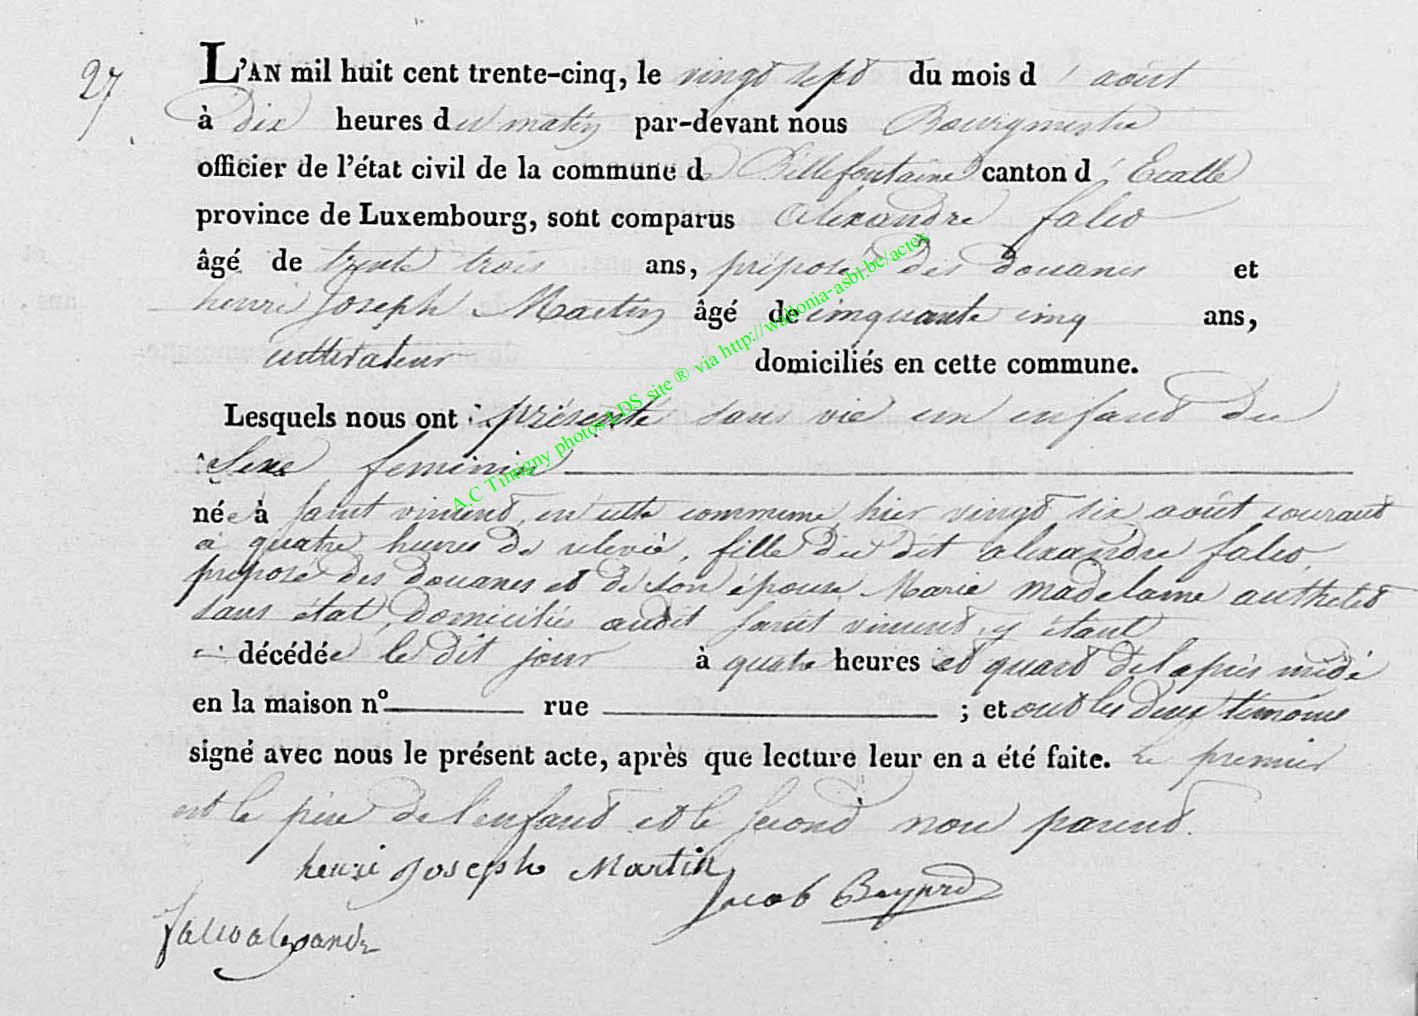 27
L'AN mil huit cent trente-cinq, le vingt sept du mois d'août
à dix heures du matin par-devant nous Bourgmestre
officier de l'état civil de la commune de Bellefontaine canton d'Etalle
province de Luxembourg, sont comparus alexandre falco
âgé de trente trois ans, préposé des douanes et
henri Joseph Martin âgé de cinquante cinq ans,
cultivateur domiciliés en cette commune.
Lesquels nous ont présenté sans vie un enfant du
Sexe feminin
née à Saint vincent, en cette commune, hier vingt six août courant
a quatre heures de relevée, fille du dit alexandre falco,
préposé des douanes et de son épouse Marie madelaine
sans état, domiciliés audit Saint vincent, y étant
décédée le dit jour à quatre heures et quart de l'après midi
en la maison nº rue ; et ont les deux témoins
signé avec nous le présent acte, après que lecture leur en a été faite. Le premier
est le père de l'enfant et le second non parent.
henri Joseph Martin
Jacob
falco alexandre
A.C Tintigny photos LDS site ® via http://wallonia-asbl.be/actes